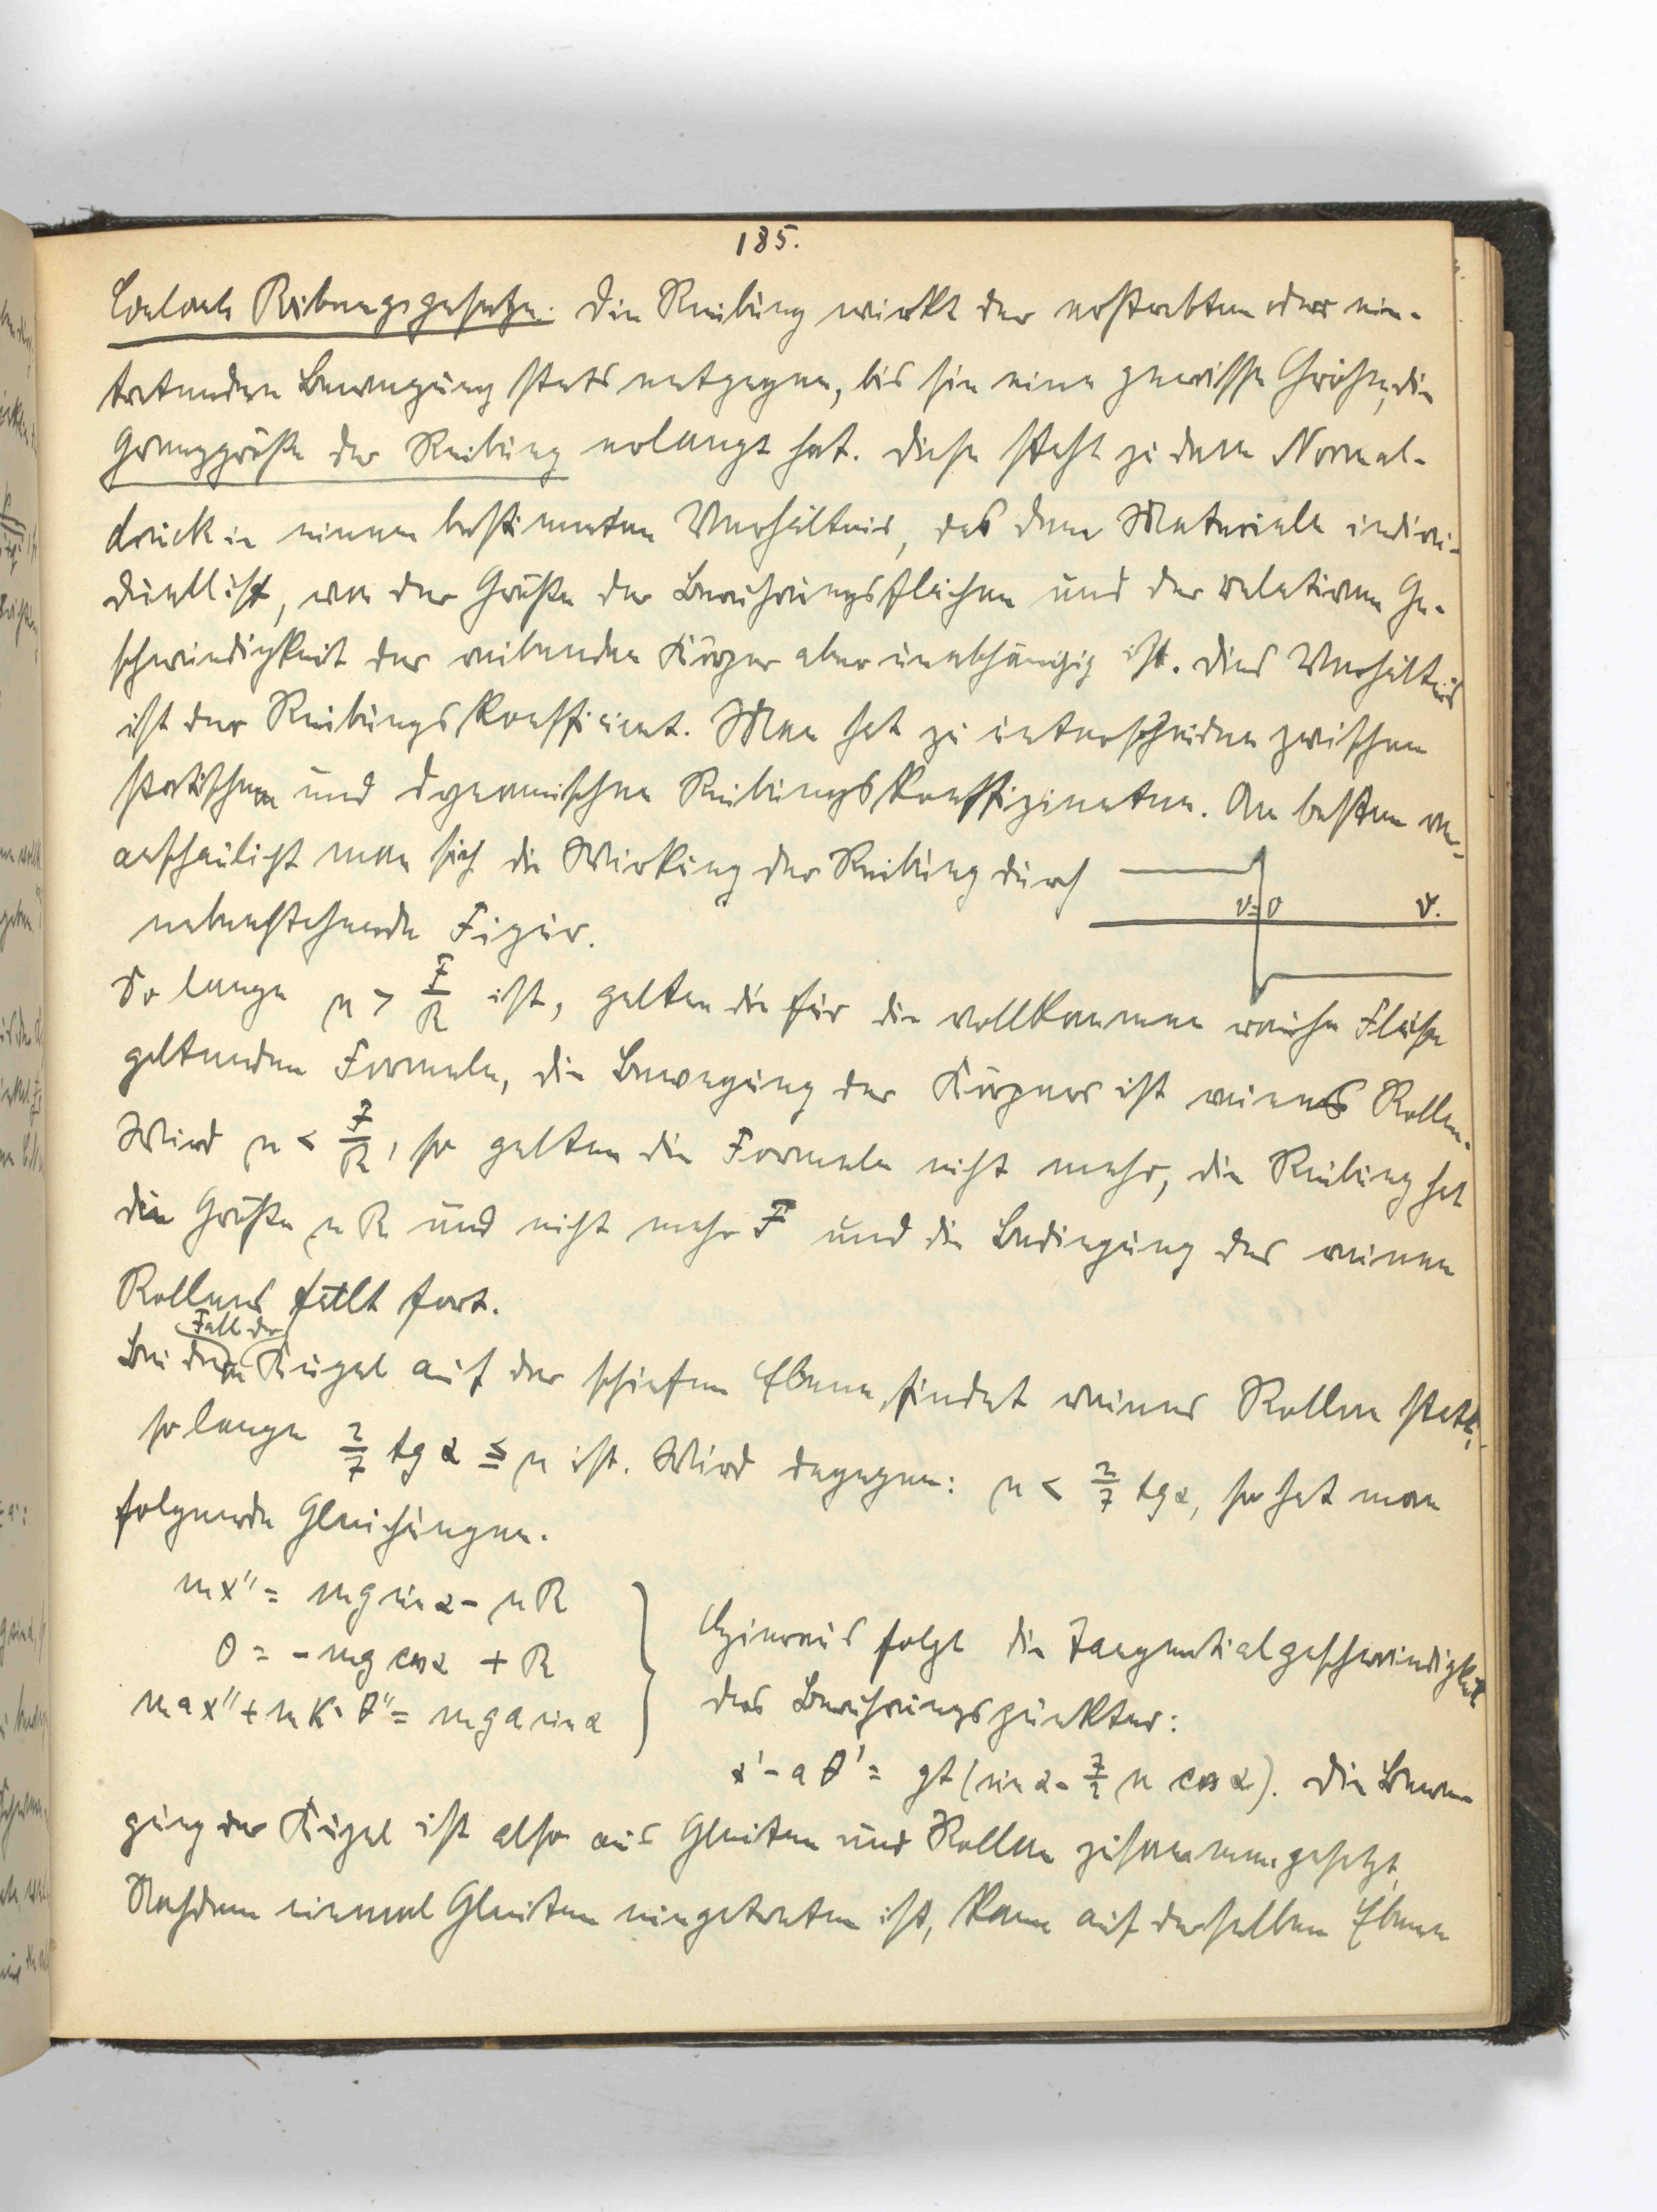 185.
Coulombs Reibungsgesetze. Die Reibung wirkt der erstrebten oder ein-
tretenden Bewegung stets entgegen, bis sie eine gewisse Größe, die
Grenzgröße der Reibung erlangt hat. Diese steht zu dem Normal-
druck in einem bestimmten Verhältnis, das dem Materiale indivi-
duell ist, von der Größe der Berührungsflächen und der relativen Ge-
schwindigkeit der reibenden Körper aber unabhängig ist. Dies Verhältnis
ist der Reibungskoefficient. Man hat zu unterscheiden zwischen
statischem und dynamischen Reibungskoeffizienten. Am besten ver-
anschaulicht man sich die Wirkung der Reibung durch
v=0 v.
nebenstehende Figur.
So lange μ > F/R ist, gelten die für die vollkommen rauhe Fläche
geltenden Formeln, die Bewegung des Körpers ist reines Rollen.
Wird μ < F/R, so gelten die Formeln nicht mehr, die Reibung hat
die Größe μR und nicht mehr F und die Bedingung des reinen
Rollens fällt fort.
Fall der
Bei dem Kugel auf der schiefen Ebene, findet reines Rollen statt,
so lange 2/7 tg α ≦ μ ist. Wird dagegen: μ < 2/7 tg α, so hat man
folgende Gleichungen.
mx'' = mg sin α - μR
0 = - mg cos α + R
max'' + mK² θ'' = mga sin α
Hieraus folgt die Tangentialgeschwindigkeit
des Berührungspunktes:
x' - aθ' = gt (sin α - 7/2 μ cos α). Die Bewe-
gung der Kugel ist also aus Gleiten und Rollen zusammengesetzt.
Nachdem einmal Gleiten eingetreten ist, kann auf derselben Ebene